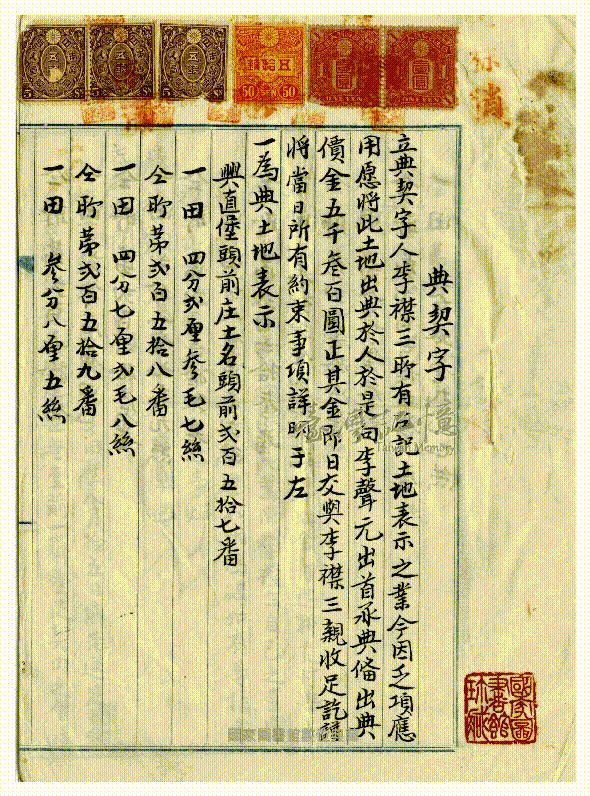 典契字
立典契字人李襟三所有右記土地表示之業今因乏項應
用愿將此土地出典於人於是向李聲元出首承典備出典
價金五千叁百圓正其金即日交與李襟三親收足訖謹
將當日所有約束事項詳明于左
一為典土地表示
興直堡頭前庄土名頭前弍百五拾七番
一田 四分弍厘參毛七絲
仝所第弍百五拾八番
一田 四分七厘弍毛八絲
仝所第弍百五拾九番
一田 參分八厘五絲
消
5 5 5 50 50 1 1
臺灣記憶
Taiwan Memory
國家圖書館